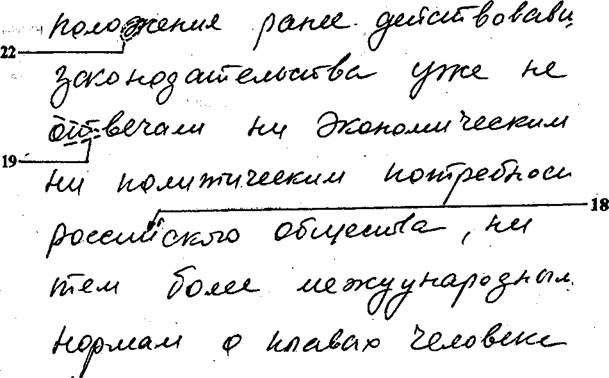 положения ранее действовавш
22
законодательства уже не
отвечали ни экономическим
19
ни политическим потребнос
18
российского общества, ни
тем более международным
нормам о правах человека